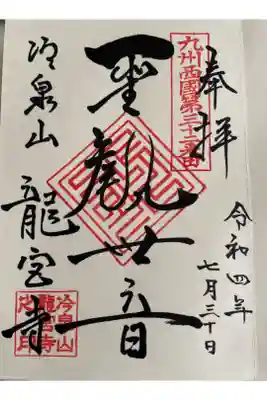 奉拝
令和四年
七月三十日
九州西國第三十二番
聖観世音
冷泉山
龍宮寺
冷泉山
龍宮寺